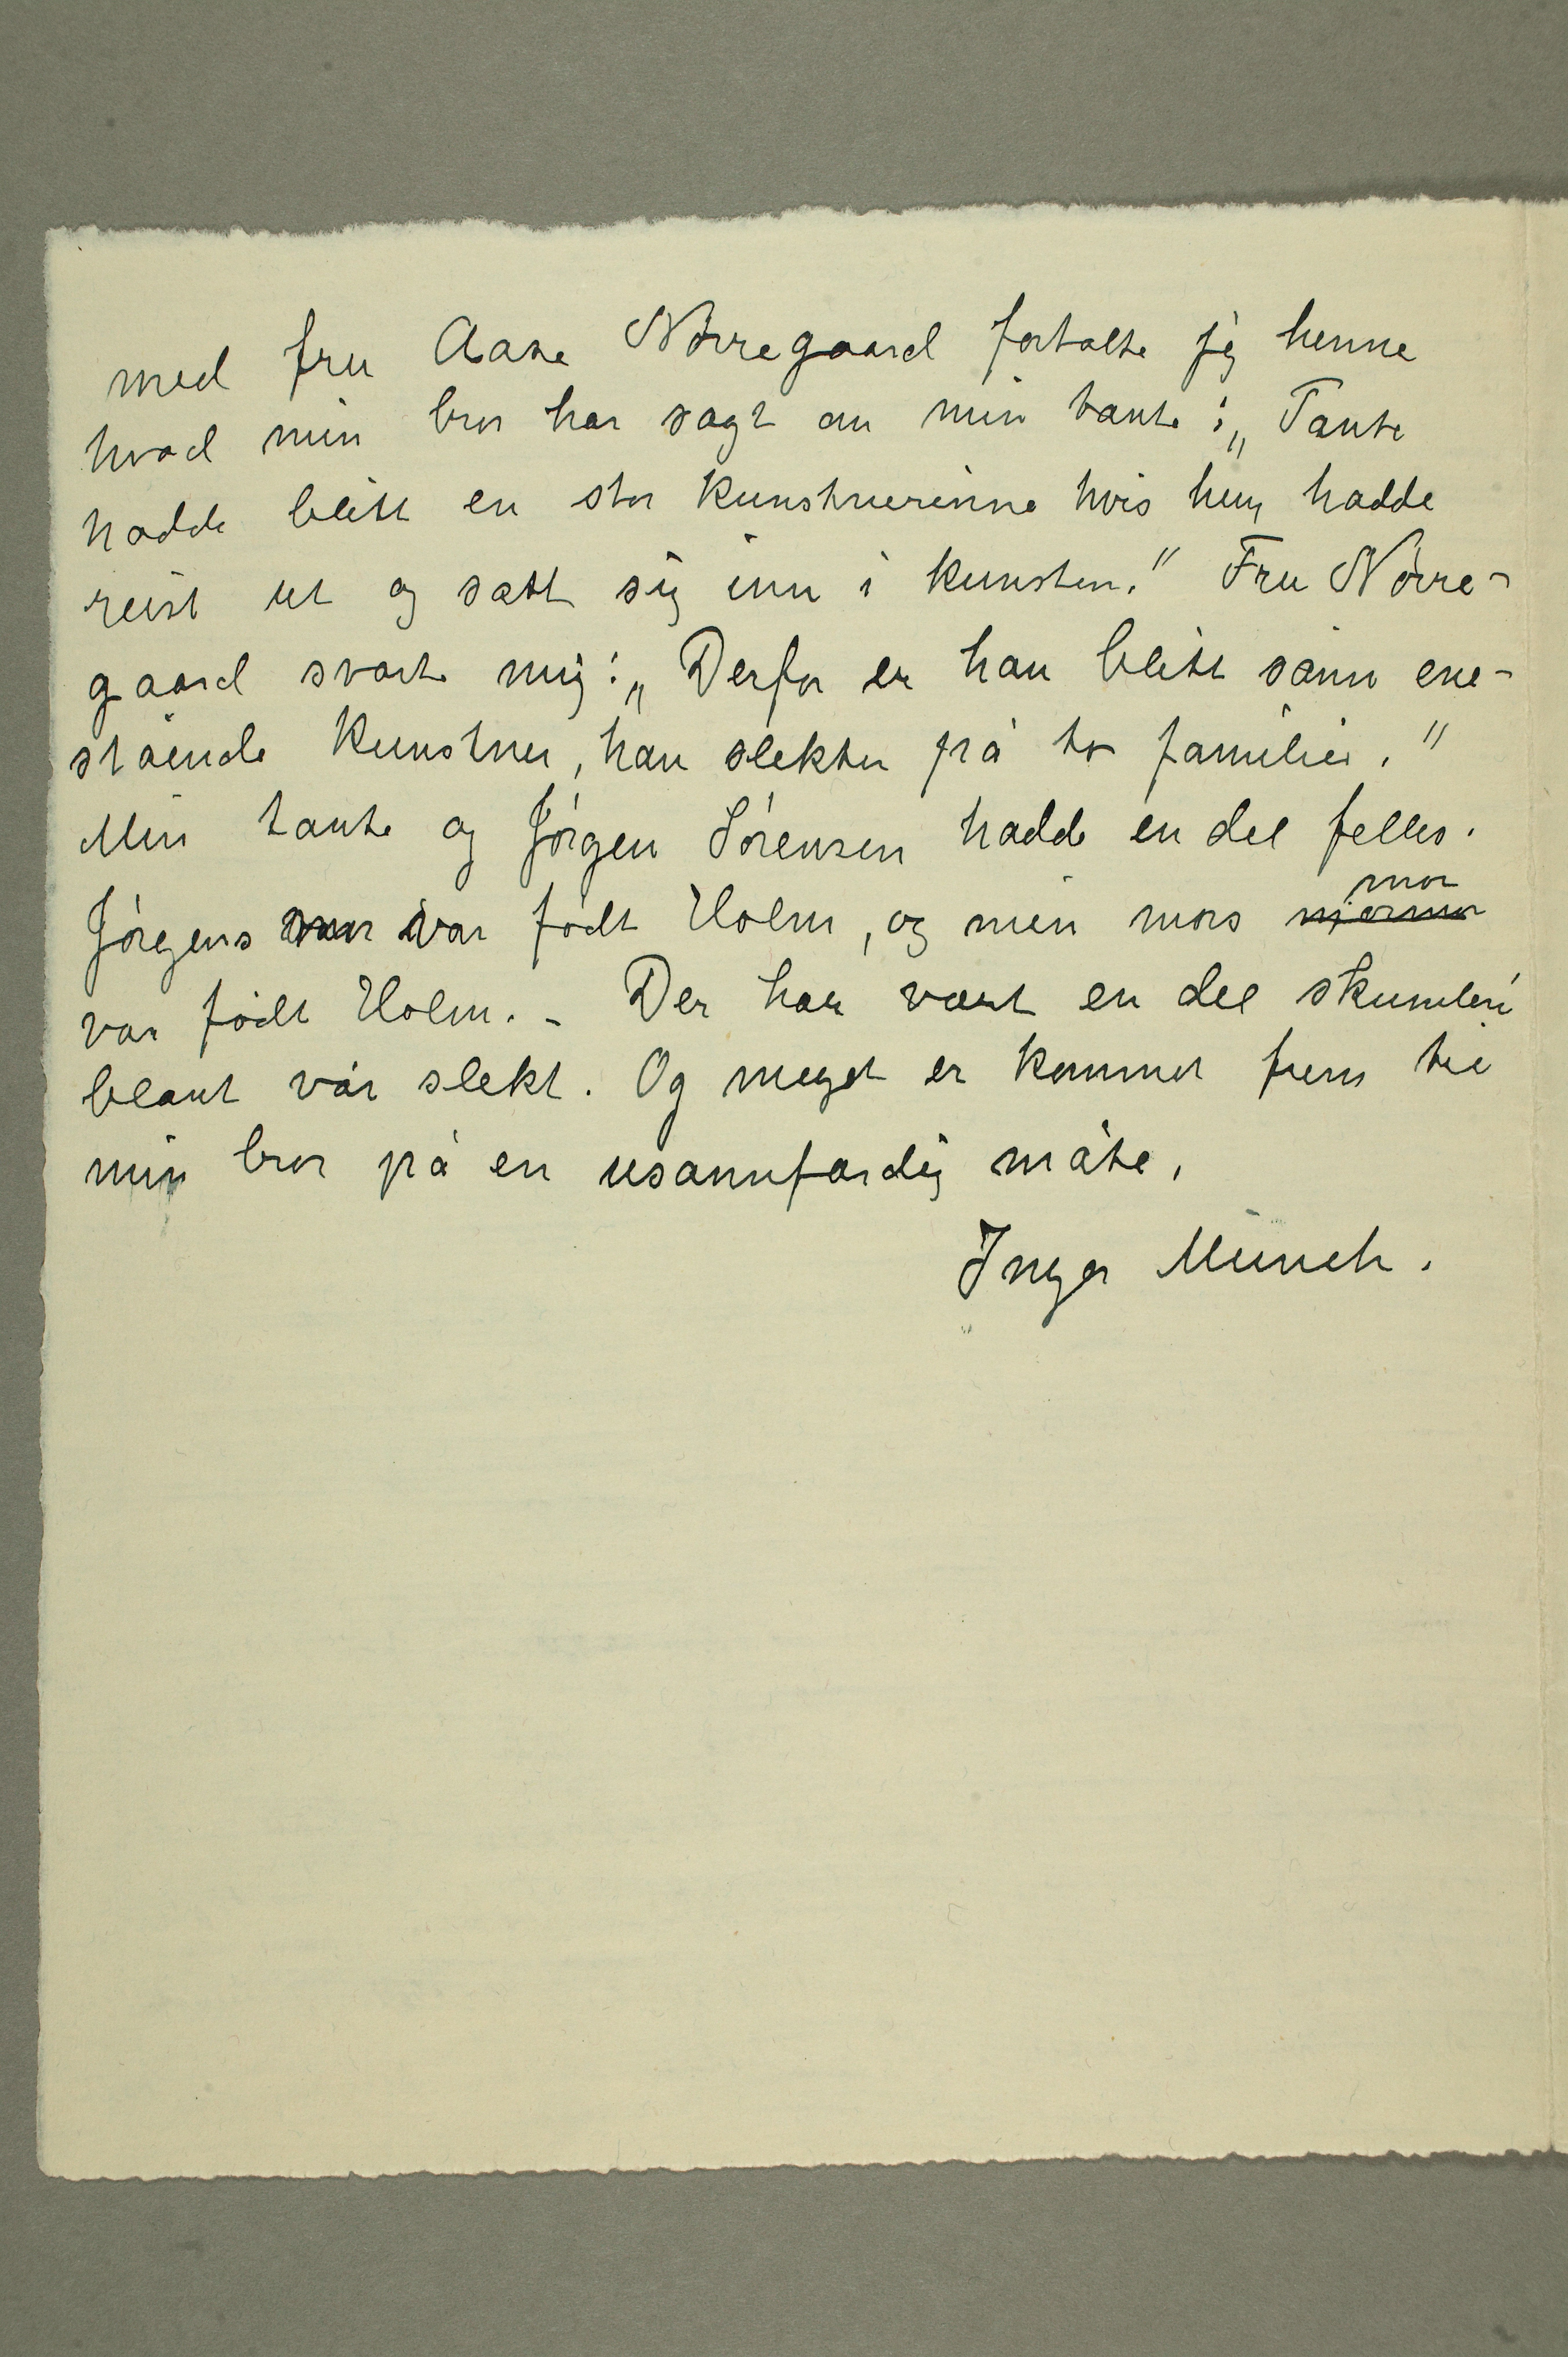 med fru Aase Nörregaard fortalte jeg henne
hvad min bror har sagt om min tante: „Tante
hadde blitt en stor kunstnerinne hvis hun hadde
reist ut og satt sig inn i kunsten." Fru Nörre-
gaard svarte mig: „Derfor er han blitt sånn ene-
stående kunstner, han slekter på to familier."
Min tante og Jörgen Sörensen hadde en del felles.
Jörgens mor var födt Holm, og min mors mor
mormor
var födt Holm. - Der har vært en del skumleri
blant vår slekt. Og meget er kommet frem til
min bror på en usannferdig måte.
Inger Munch.